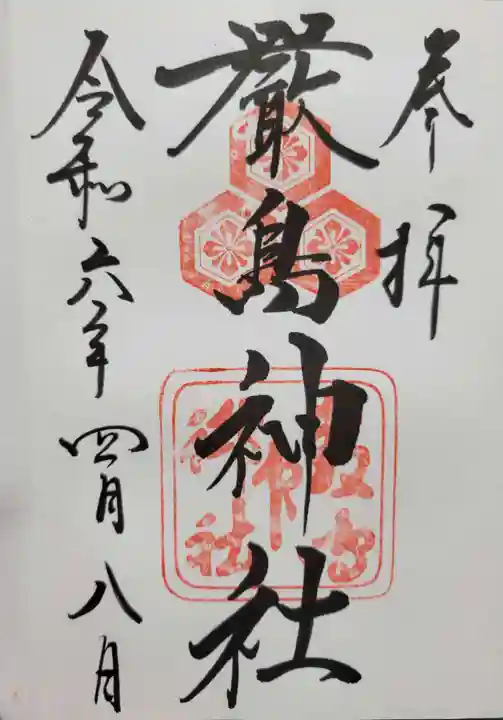 奉拝
嚴島神社
令和六年四月八日